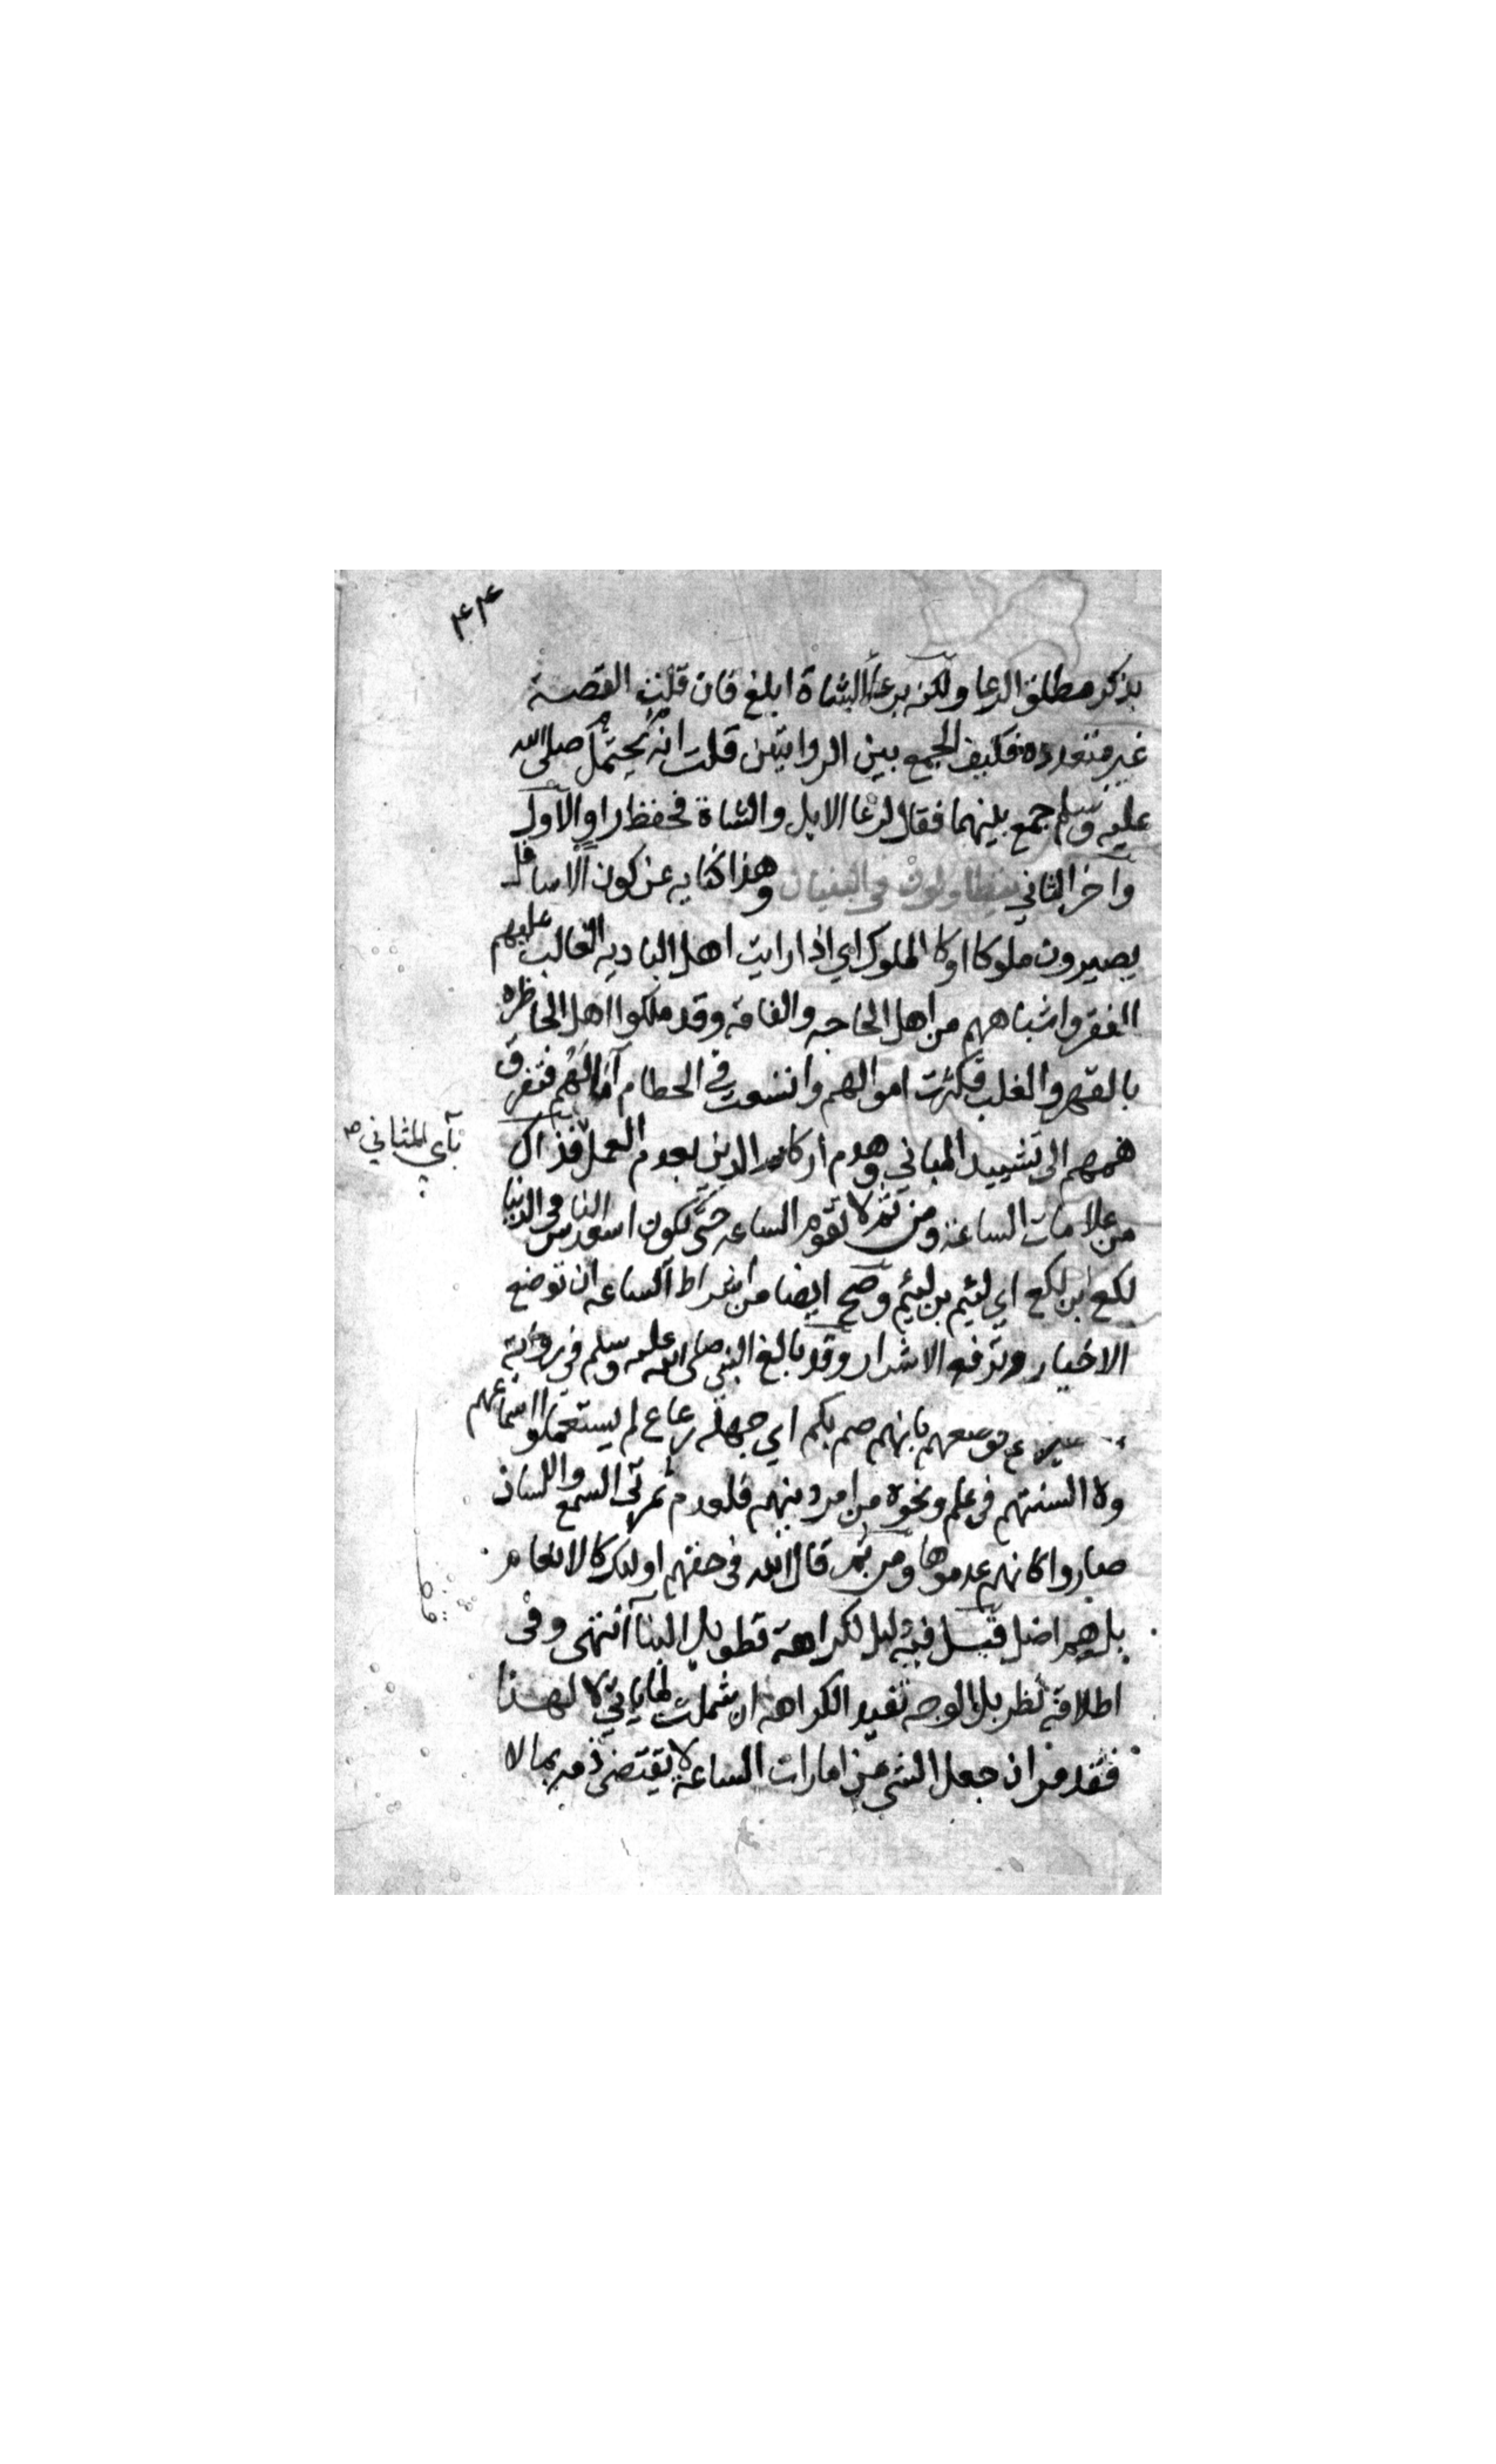 ٤٤
بذكر مطلق الرعا ولكنه برعاء الشاة ابلغ فان قلت القصة
غير متعدده فكيف الجمع بين الروايتين قلت انه يحتمل صلى الله
عليه وسلم جمع بينهما فقال لرعا الابل والشاة فحفظ راو الاول
واخر الثاني يتطاولون في البنيان وهذا كنايه عن كون الاسافل
يصيرون ملوكا او كالملوك اي اذا رايت اهل الباديه الغالب عليهم
الفقر واشباههم من اهل الحاجه والفاقه وقد ملكوا اهل الحاظره
بالقهر والغلب فكثرت اموالهم واتسعت في الحطام امالهم فتفرق
هممهم الى تشييد المباني وهدم اركان الدين بعدم العمل فذاك
بآي المثاني صح
من علامات الساعة ومن ثم لا تقوم الساعه حتى تكون اسعد الناس في الدنيا
لكع ابن لكع اي لئيم بن لئيم وصح ايضا من اشراط الساعه ان توضع
الاخيار وترفع الاشرار وقد بالغ النبي صلى الله عليه وسلم في رواية
فوصفهم بانهم صم بكم اي جهلة رعاع لم يستعملوا اسماعهم
ولا السنتهم في علم ونحوه من امر دينهم فلعدم ثمرتي السمع واللسان
صاروا كانهم عدموها ومن ثم قال الله في حقهم اولئك كالانعام
بل هم اضل قيل فيه دليل لكراهة تطويل البنا انتهى وفي
اطلاقه نظر بل الوجه تقيد الكراهه ان شملت لما ياتي لا لهذا
فقد مر ان جعل الشي من امارات الساعة لا يقتضي ذمه بما لا